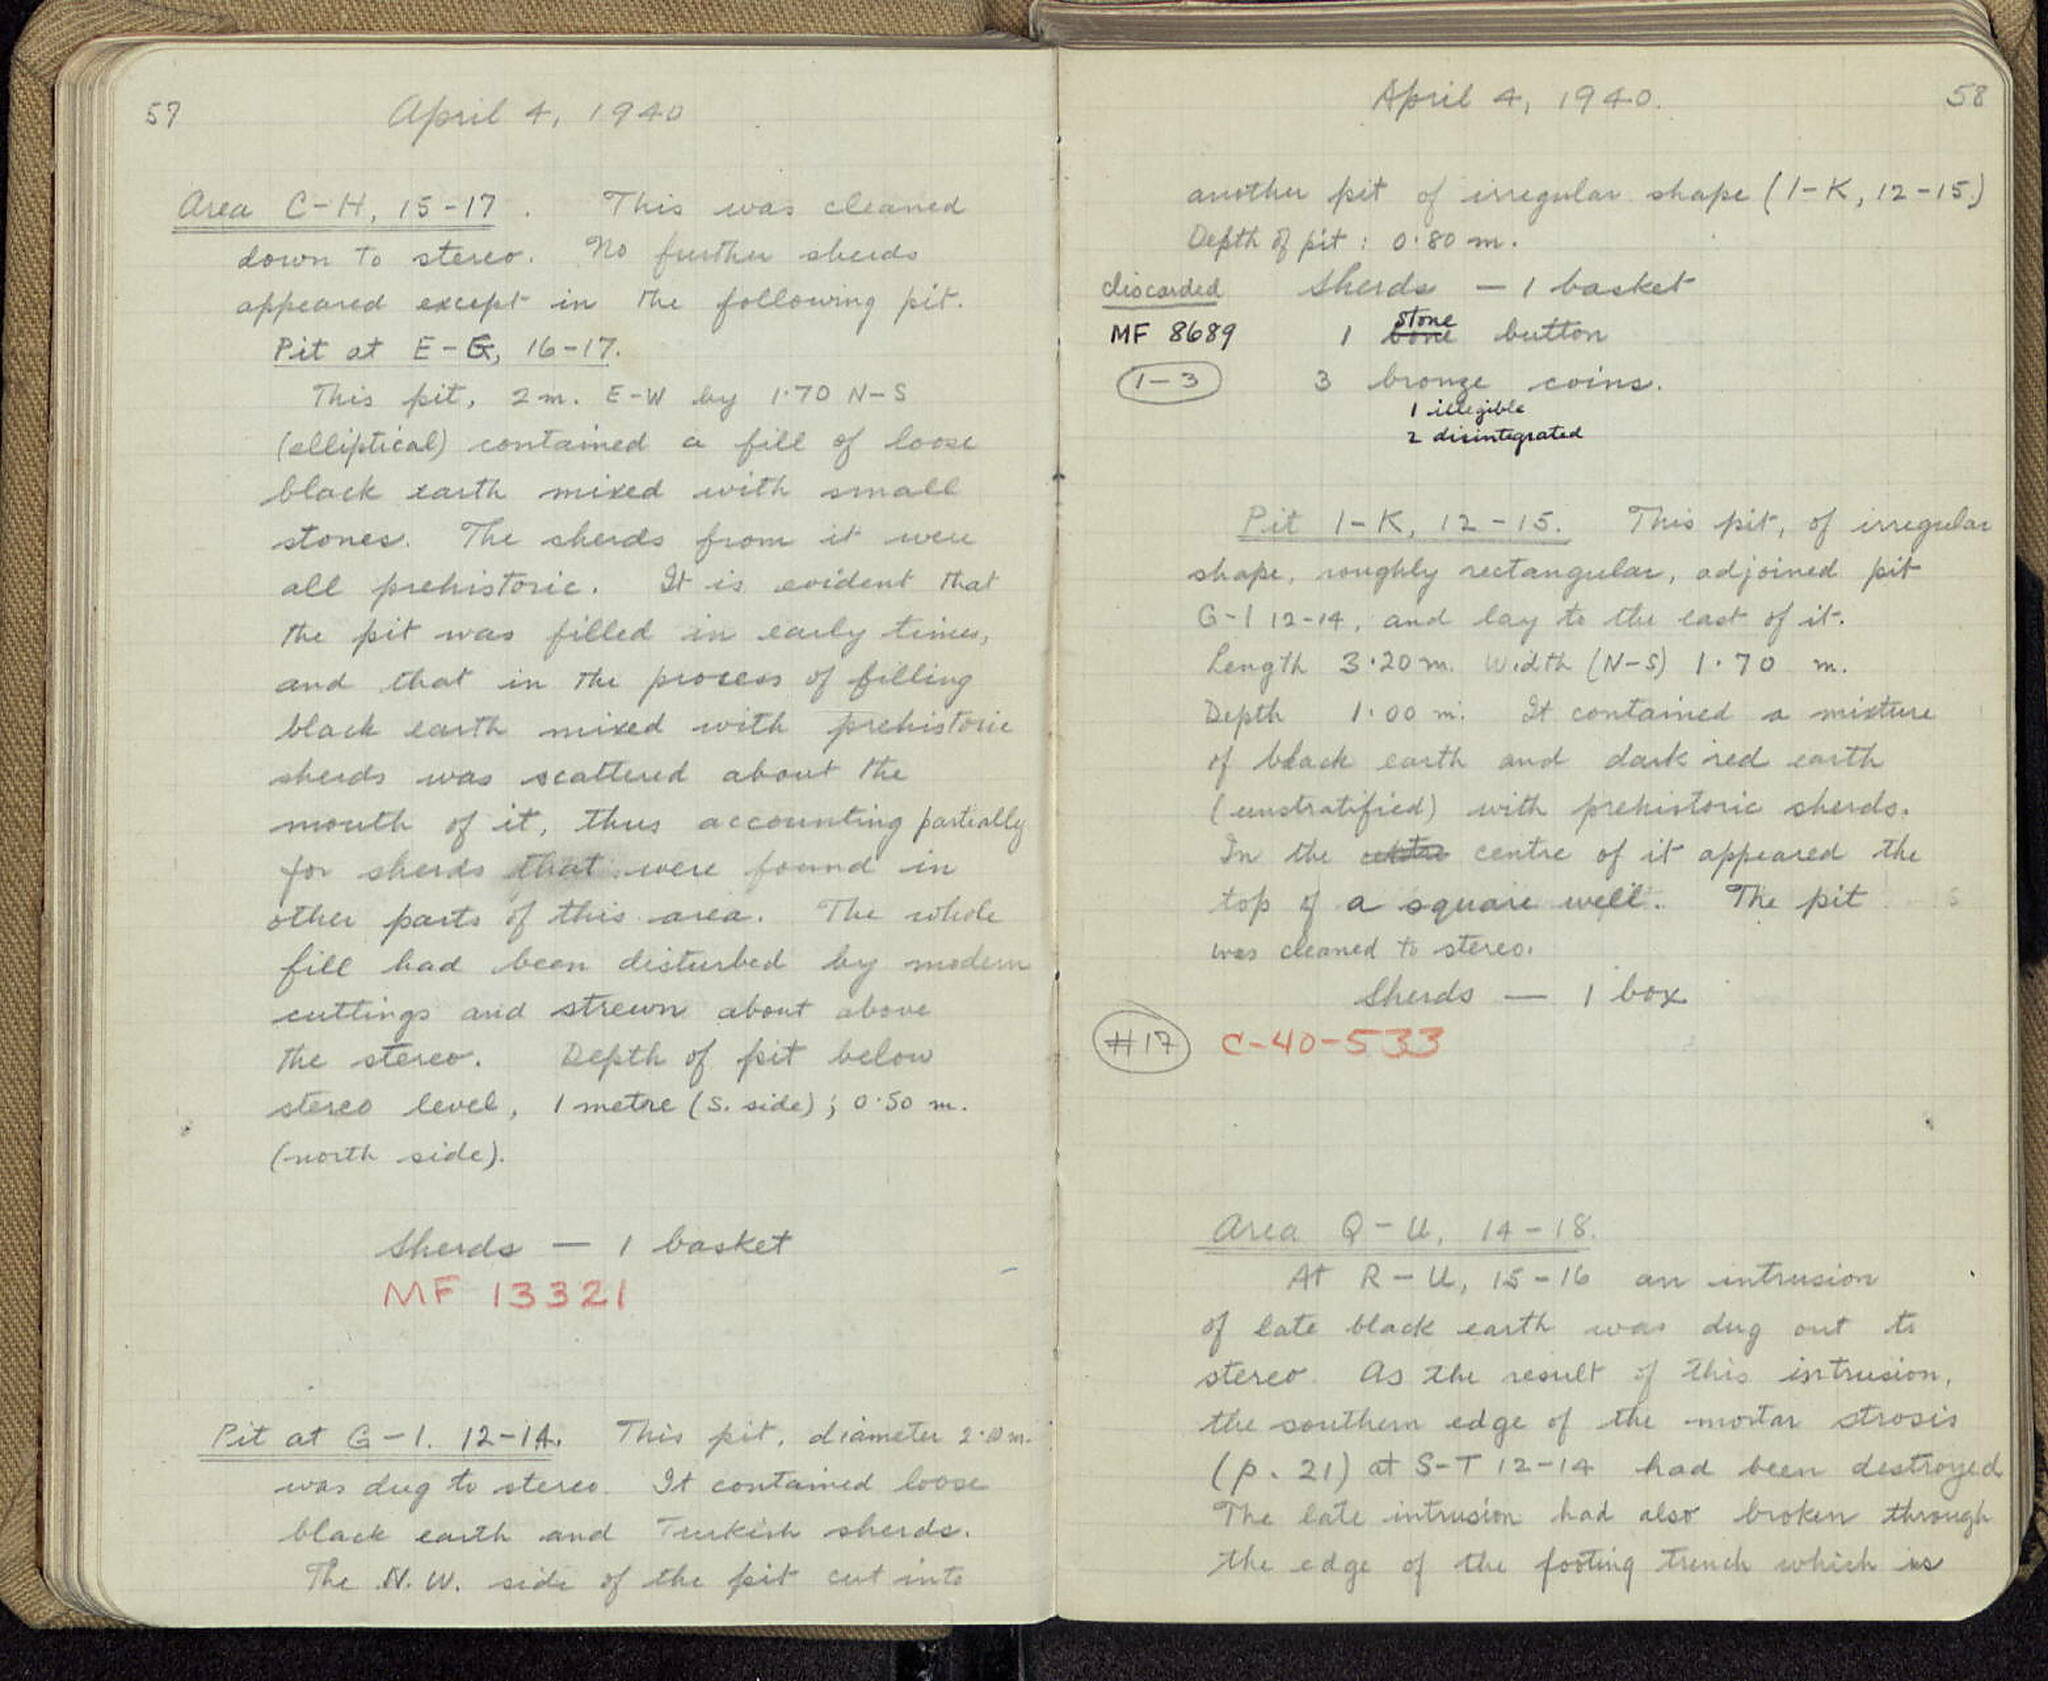 57
April 4, 1940
Area C-H, 15-17. This was cleaned
down to stereo. No further sherds
appeared except in the following pit.
Pit at E-G, 16-17.
This pit, 2 m. E-W by 1.70 N-S
(elliptical) contained a fill of loose
black earth mixed with small
stones. The sherds from it were
all prehistoric. It is evident that
the pit was filled in early times,
and that in the process of filling
black earth mixed with prehistoric
sherds was scattered about the
mouth of it, thus accounting partially
for sherds that were found in
other parts of this area. The whole
fill had been disturbed by modern
cuttings and strewn about above
the stereo. Depth of pit below
stereo level, 1 metre (S. side); 0.50 m.
(north side).
Sherds — 1 basket
MF 13321
Pit at G-I. 12-14. This pit, diameter m.
was dug to stereo. It contained loose
black earth and Turkish sherds.
The N.W. side of the pit cut into
April 4, 1940.
58
another pit of irregular shape (I-K, 12-15.)
Depth of pit: 0.80 m.
discarded Sherds — 1 basket
MF 8689 1 bone stone button
1-3 3 bronze coins.
1 illegible
2 disintegrated
Pit I-K, 12-15. This pit, of irregular
shape, roughly rectangular, adjoined pit
G-I 12-14, and lay to the east of it.
Length 3.20 m. Width (N-S) 1.70 m.
Depth 1.00 m. It contained a mixture
of black earth and dark red earth
(unstratified) with prehistoric sherds.
In the centre of it appeared the
top of a square well. The pit
was cleaned to stereo.
Sherds — 1 box
#17 C-40-533
Area Q-U, 14-18.
At R-U, 15-16 an intrusion
of late black earth was dug out to
stereo. As the result of this intrusion,
the southern edge of the mortar strosis
(p. 21) at S-T 12-14 had been destroyed
The late intrusion had also broken through
the edge of the footing trench which is